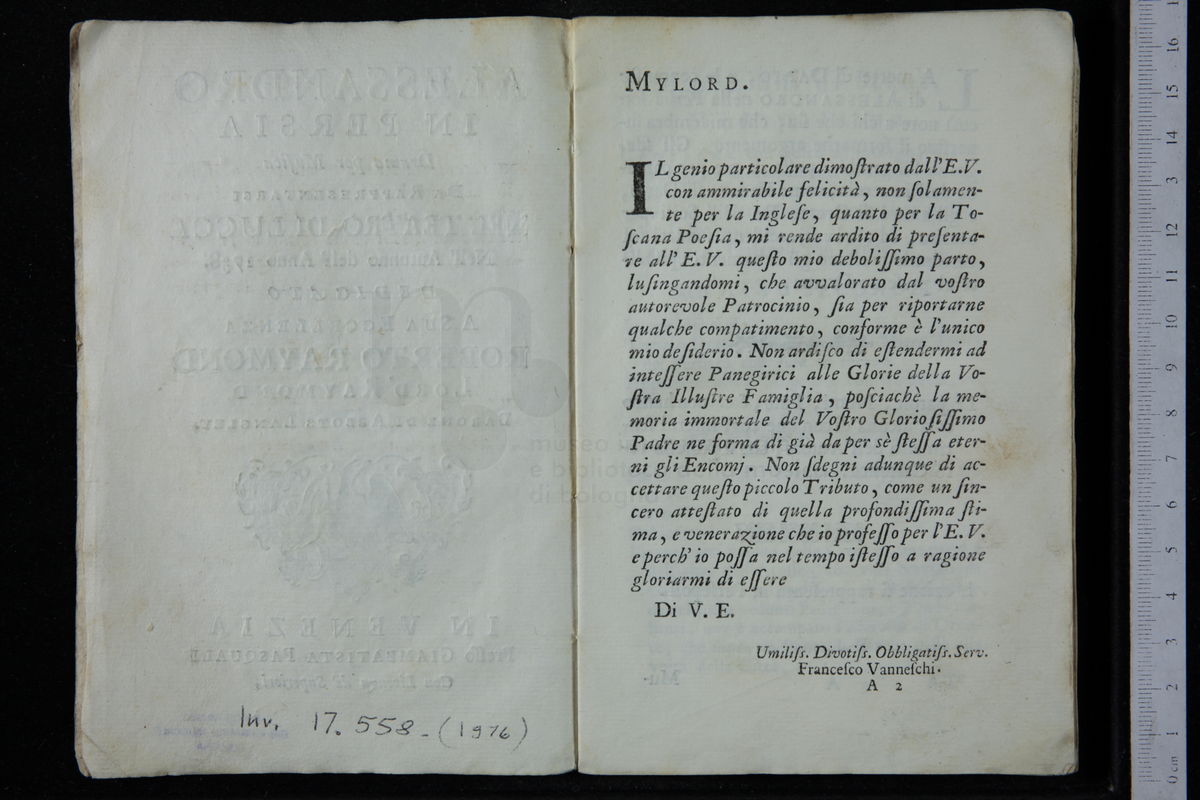 Inv. 17.558 - (1976)
MYLORD.
IL genio particolare dimoſtrato dall' E.V.
con ammirabile felicità, non ſolamen-
te per la Ingleſe, quanto per la To-
ſcana Poeſia, mi rende ardito di preſenta-
re all' E.V. queſto mio deboliſſimo parto,
luſingandomi, che avvalorato dal voſtro
autorevole Patrocinio, ſia per riportarne
qualche compatimento, conforme è l'unico
mio deſiderio. Non ardiſco di eſtendermi ad
inteſſere Panegirici alle Glorie della Vo-
ſtra Illuſtre Famiglia, poſciachè la me-
moria immortale del Voſtro Glorioſiſſimo
Padre ne forma di già da per sè ſteſſa eter-
ni gli Encomj. Non ſdegni adunque di ac-
cettare queſto piccolo Tributo, come un ſin-
cero atteſtato di quella profondiſſima ſti-
ma, e venerazione che io profeſſo per l'E.V.
e perch' io poſſa nel tempo iſteſſo a ragione
gloriarmi di eſſere
Di V. E.
Umiliſs. Divotiſs. Obbligatiſs. Serv.
Franceſco Vanneſchi.
A 2